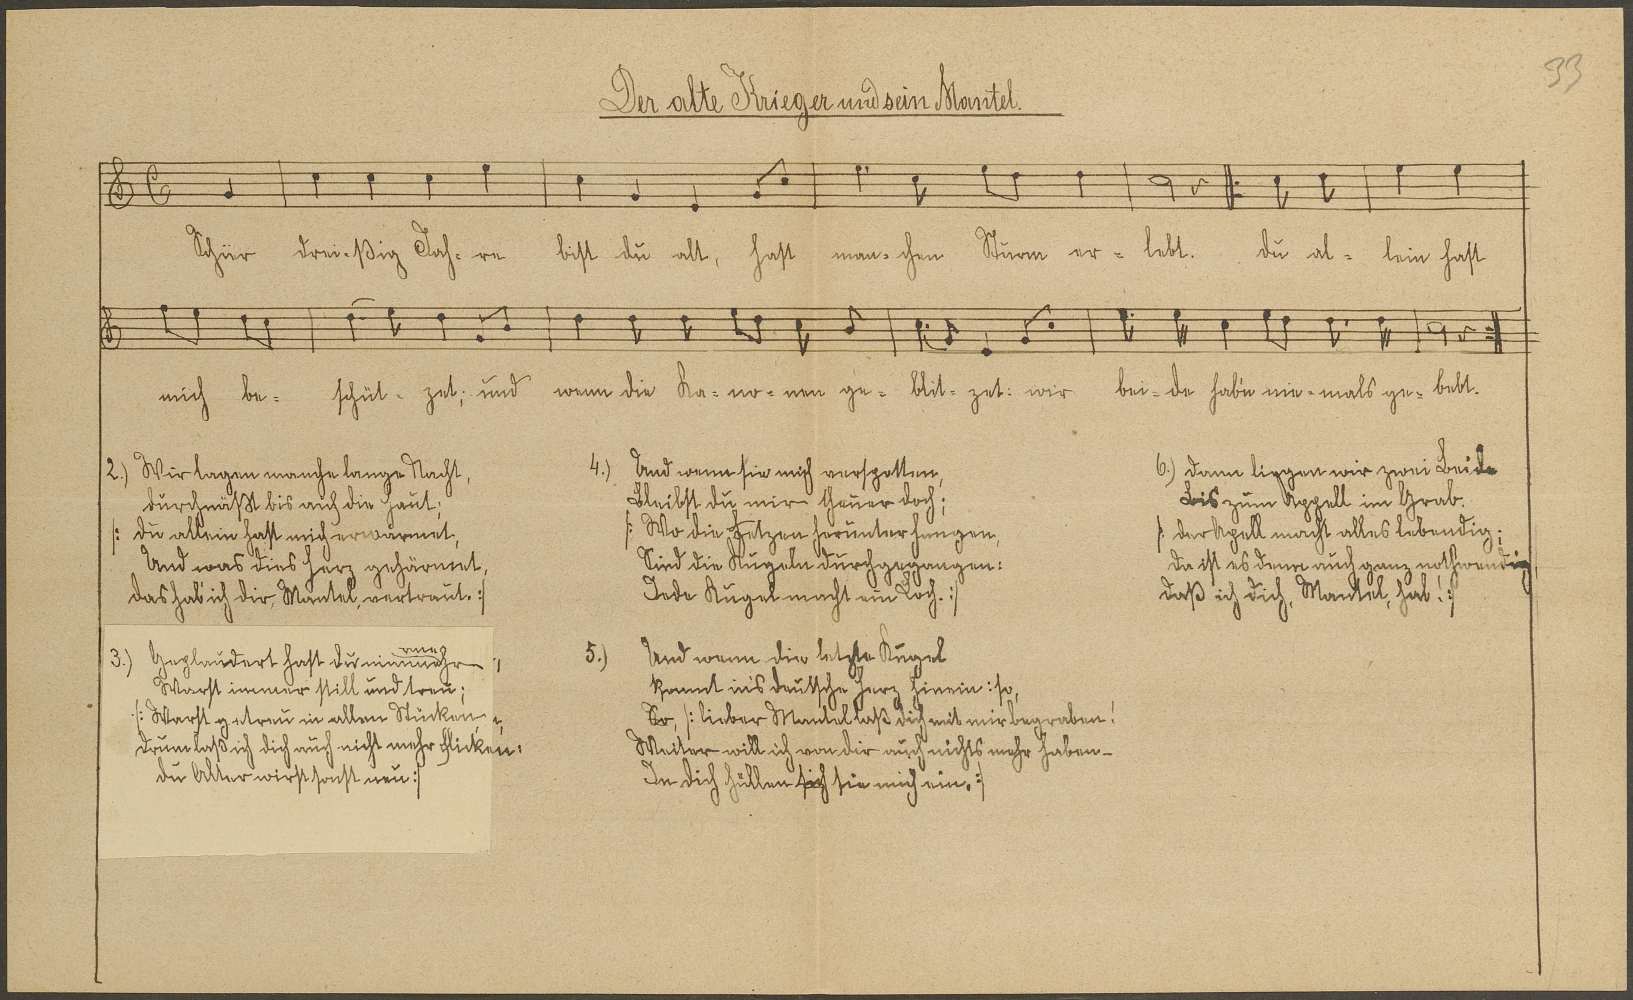 33
Der alte Krieger und sein Mantel.
Schier drei-ßig Jah-re bist du alt, hast man-chen Sturm er-lebt. du al-lein hast
mich be-schüt-zet; und wenn die Ka-no-nen ge-blit-zet: wir bei-de hab'n nie-mals ge-bebt.
2.) Wir lagen manche lange Nacht,
durchnäßt bis auf die Haut;
|: du allein hast mich erwärmet,
Und was dies Herz gehärmet,
das hab' ich dir, Mantel, vertraut. :|
3.) Geplaudert hast du nimmehr,
Warst immer still und treu;
|: Warst getreu in allen Stücken,
drum laß ich dich auch nicht mehr flicken:
du Alter wirst sonst neu :|
4.) Und wenn sie mich verspotten,
Bleibst du mir theuer doch;
|: Wo die Fetzen herunter hangen,
Sind die Kugeln durchgegangen:
Jede Kugel macht ein Loch. :|
5.) Und wenn die letzte Kugel
kommt in's deutsche Herz hinein: so,
So, |: lieber Mantel laß dich mit mir begraben!
Weiter will ich von dir auch nichts mehr haben
In dich hüllen sich sie mich ein. :|
6.) dann liegen wir zwei Beide
Bis zum Appell im Grab.
|: der Apell macht alles lebendig;
da ist es denn auch ganz nothwendig,
daß ich dich, Mantel, hab'! :|